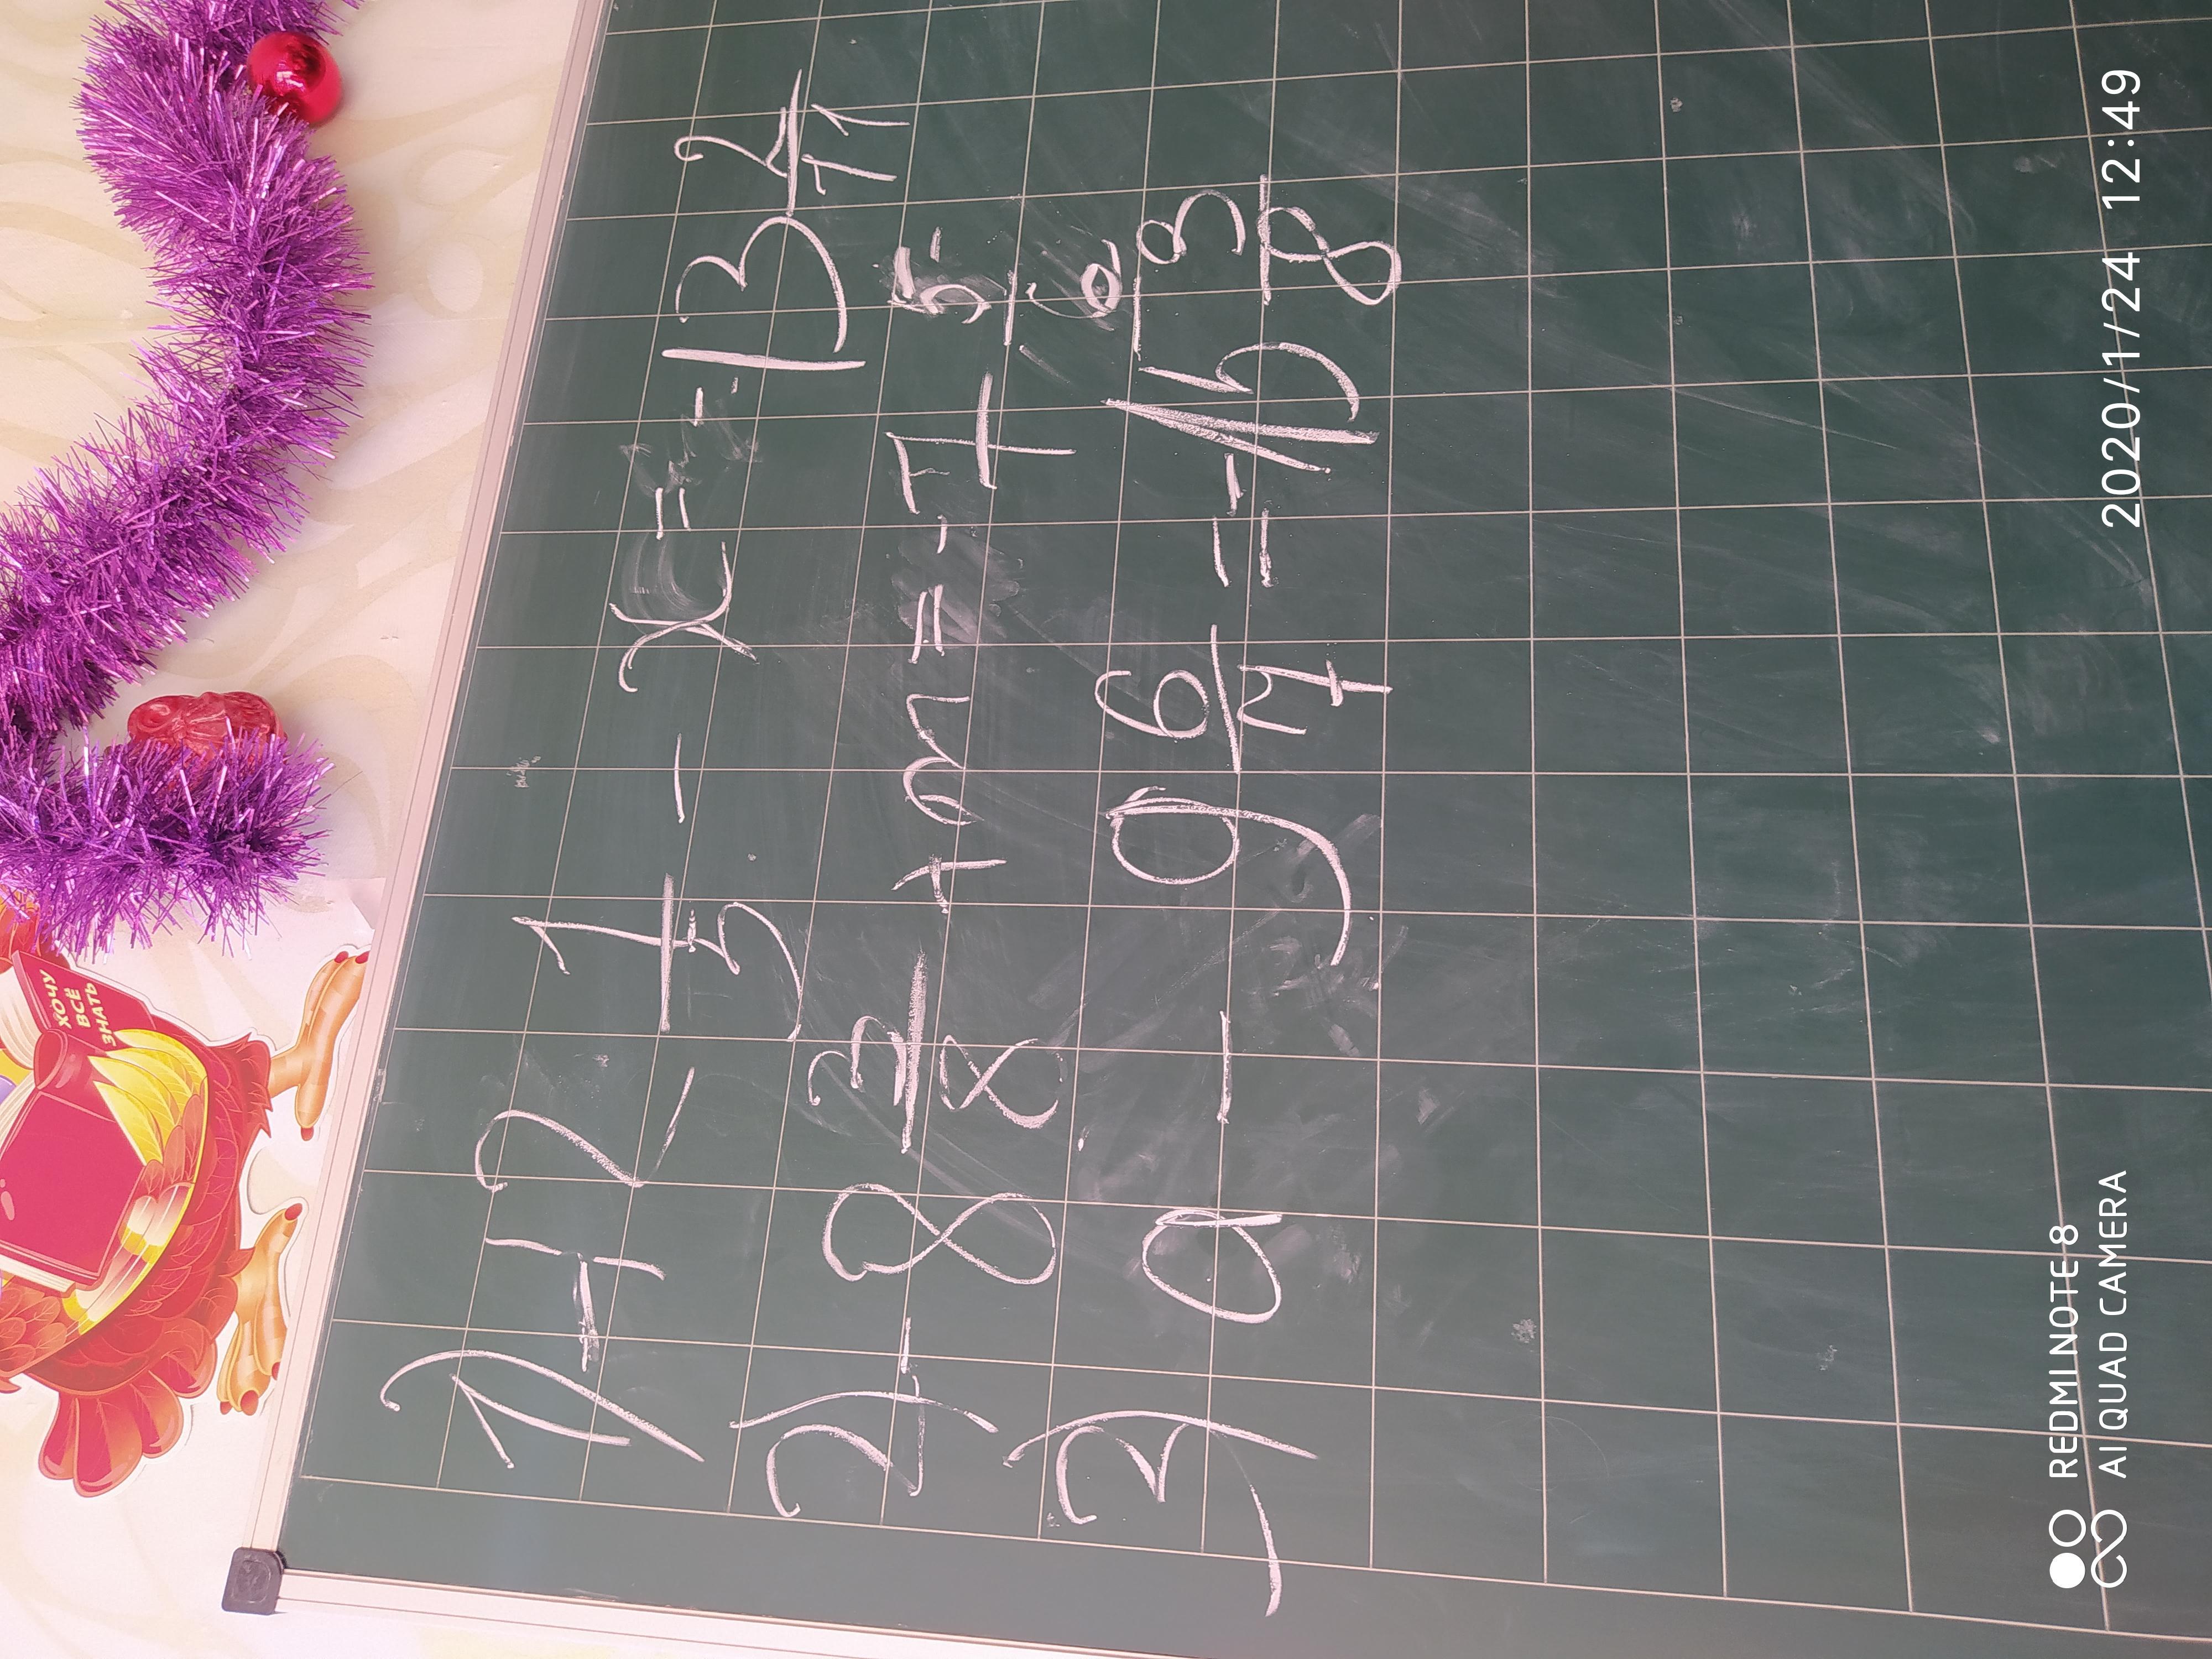 1) -12 1/5 - x = -13 2/11
2) -8 3/8 + m = -7 5/16
3) a - 9 6/7 = -15 3/8
ХОЧУ
ВСЁ
ЗНАТЬ
REDMI NOTE 8
AI QUAD CAMERA
2020/1/24 12:49